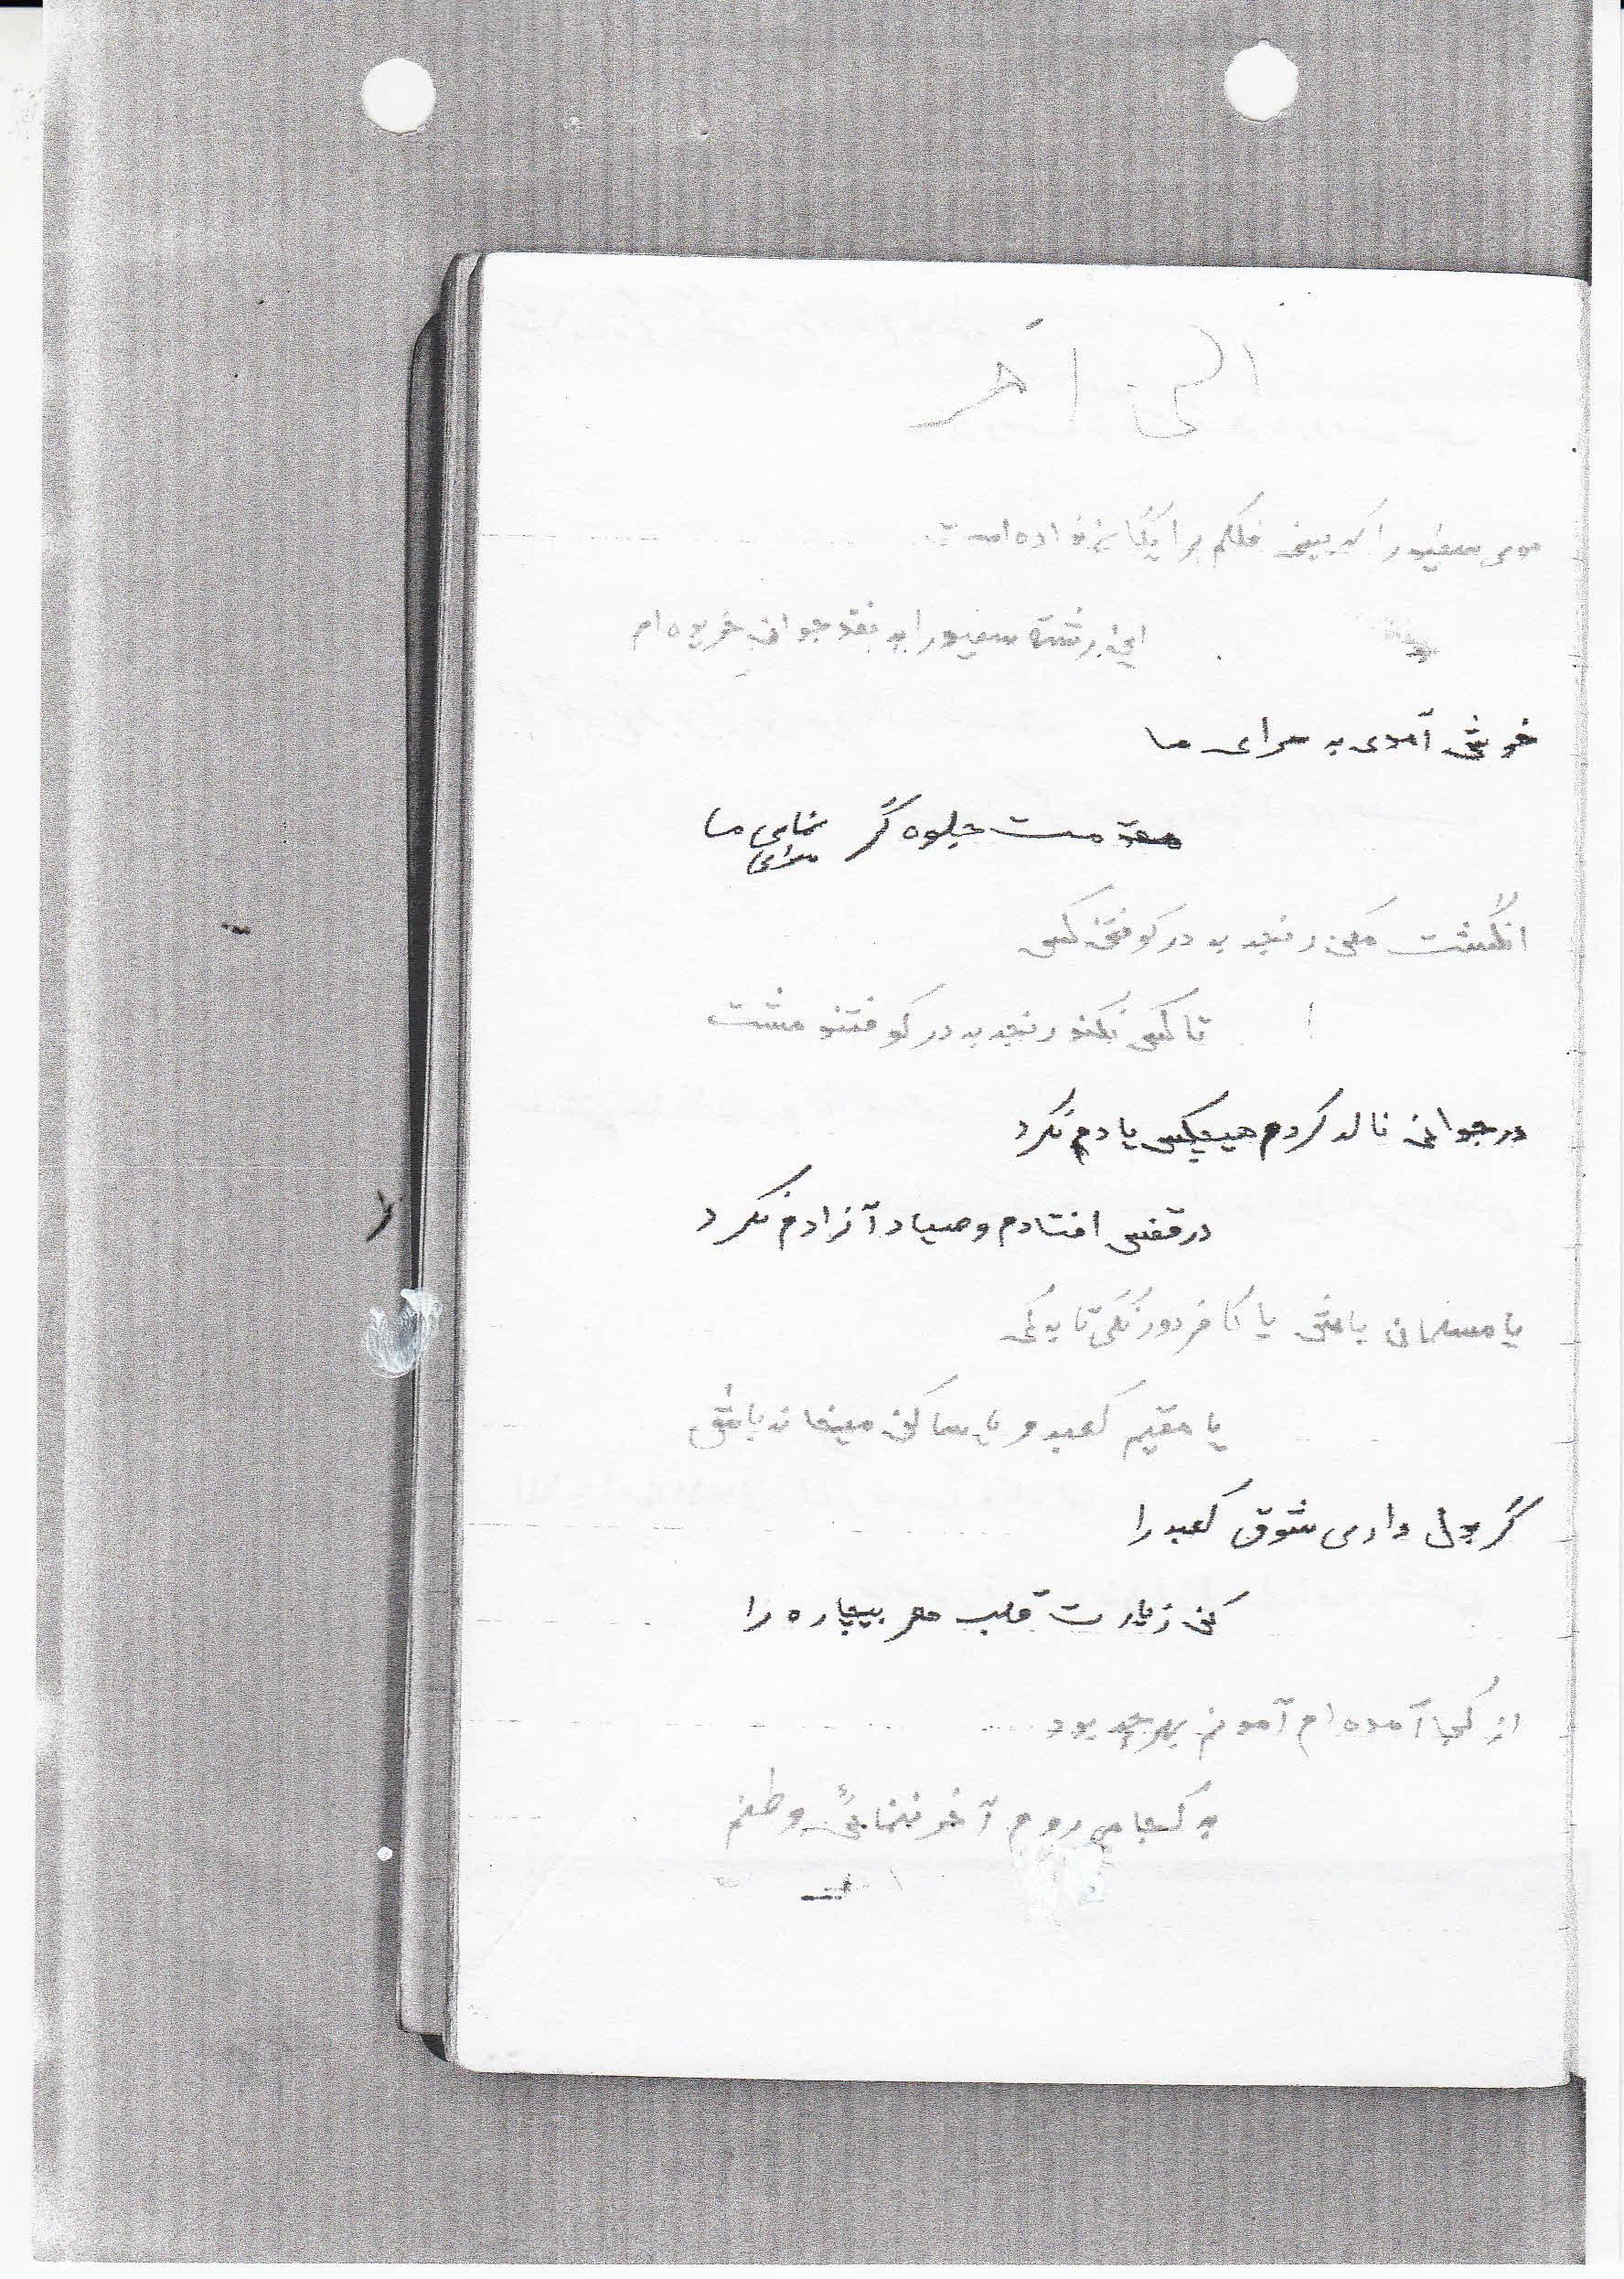 الی آخر
موی سفید را که بینی فلکم برایگان نداده است
این رشته سفید را به نقد جوانی خریده ام
خوش آمدی به سرای ما
مقدمت جلوه گر تمامی ما
سرای
انگشت مکن رنجه به در کوفتن کس
تا کس نکند رنجه به در کوفتنو مشت
در جوانی ناله کردم هیچکس یادم نکرد
در قفس افتادم و صیاد آزادم نکرد
یا مسلمان باش یا کافر دورنگی تا به کی
یا مقیم کعبه و یا ساکن میخانه باش
گر بدل داری شوق کعبه را
کن زیارت قلب هر بیچاره را
از کجا آمده ام آمدنم بهر چه بود
به کجا می روم آخر ننمائی وطنم